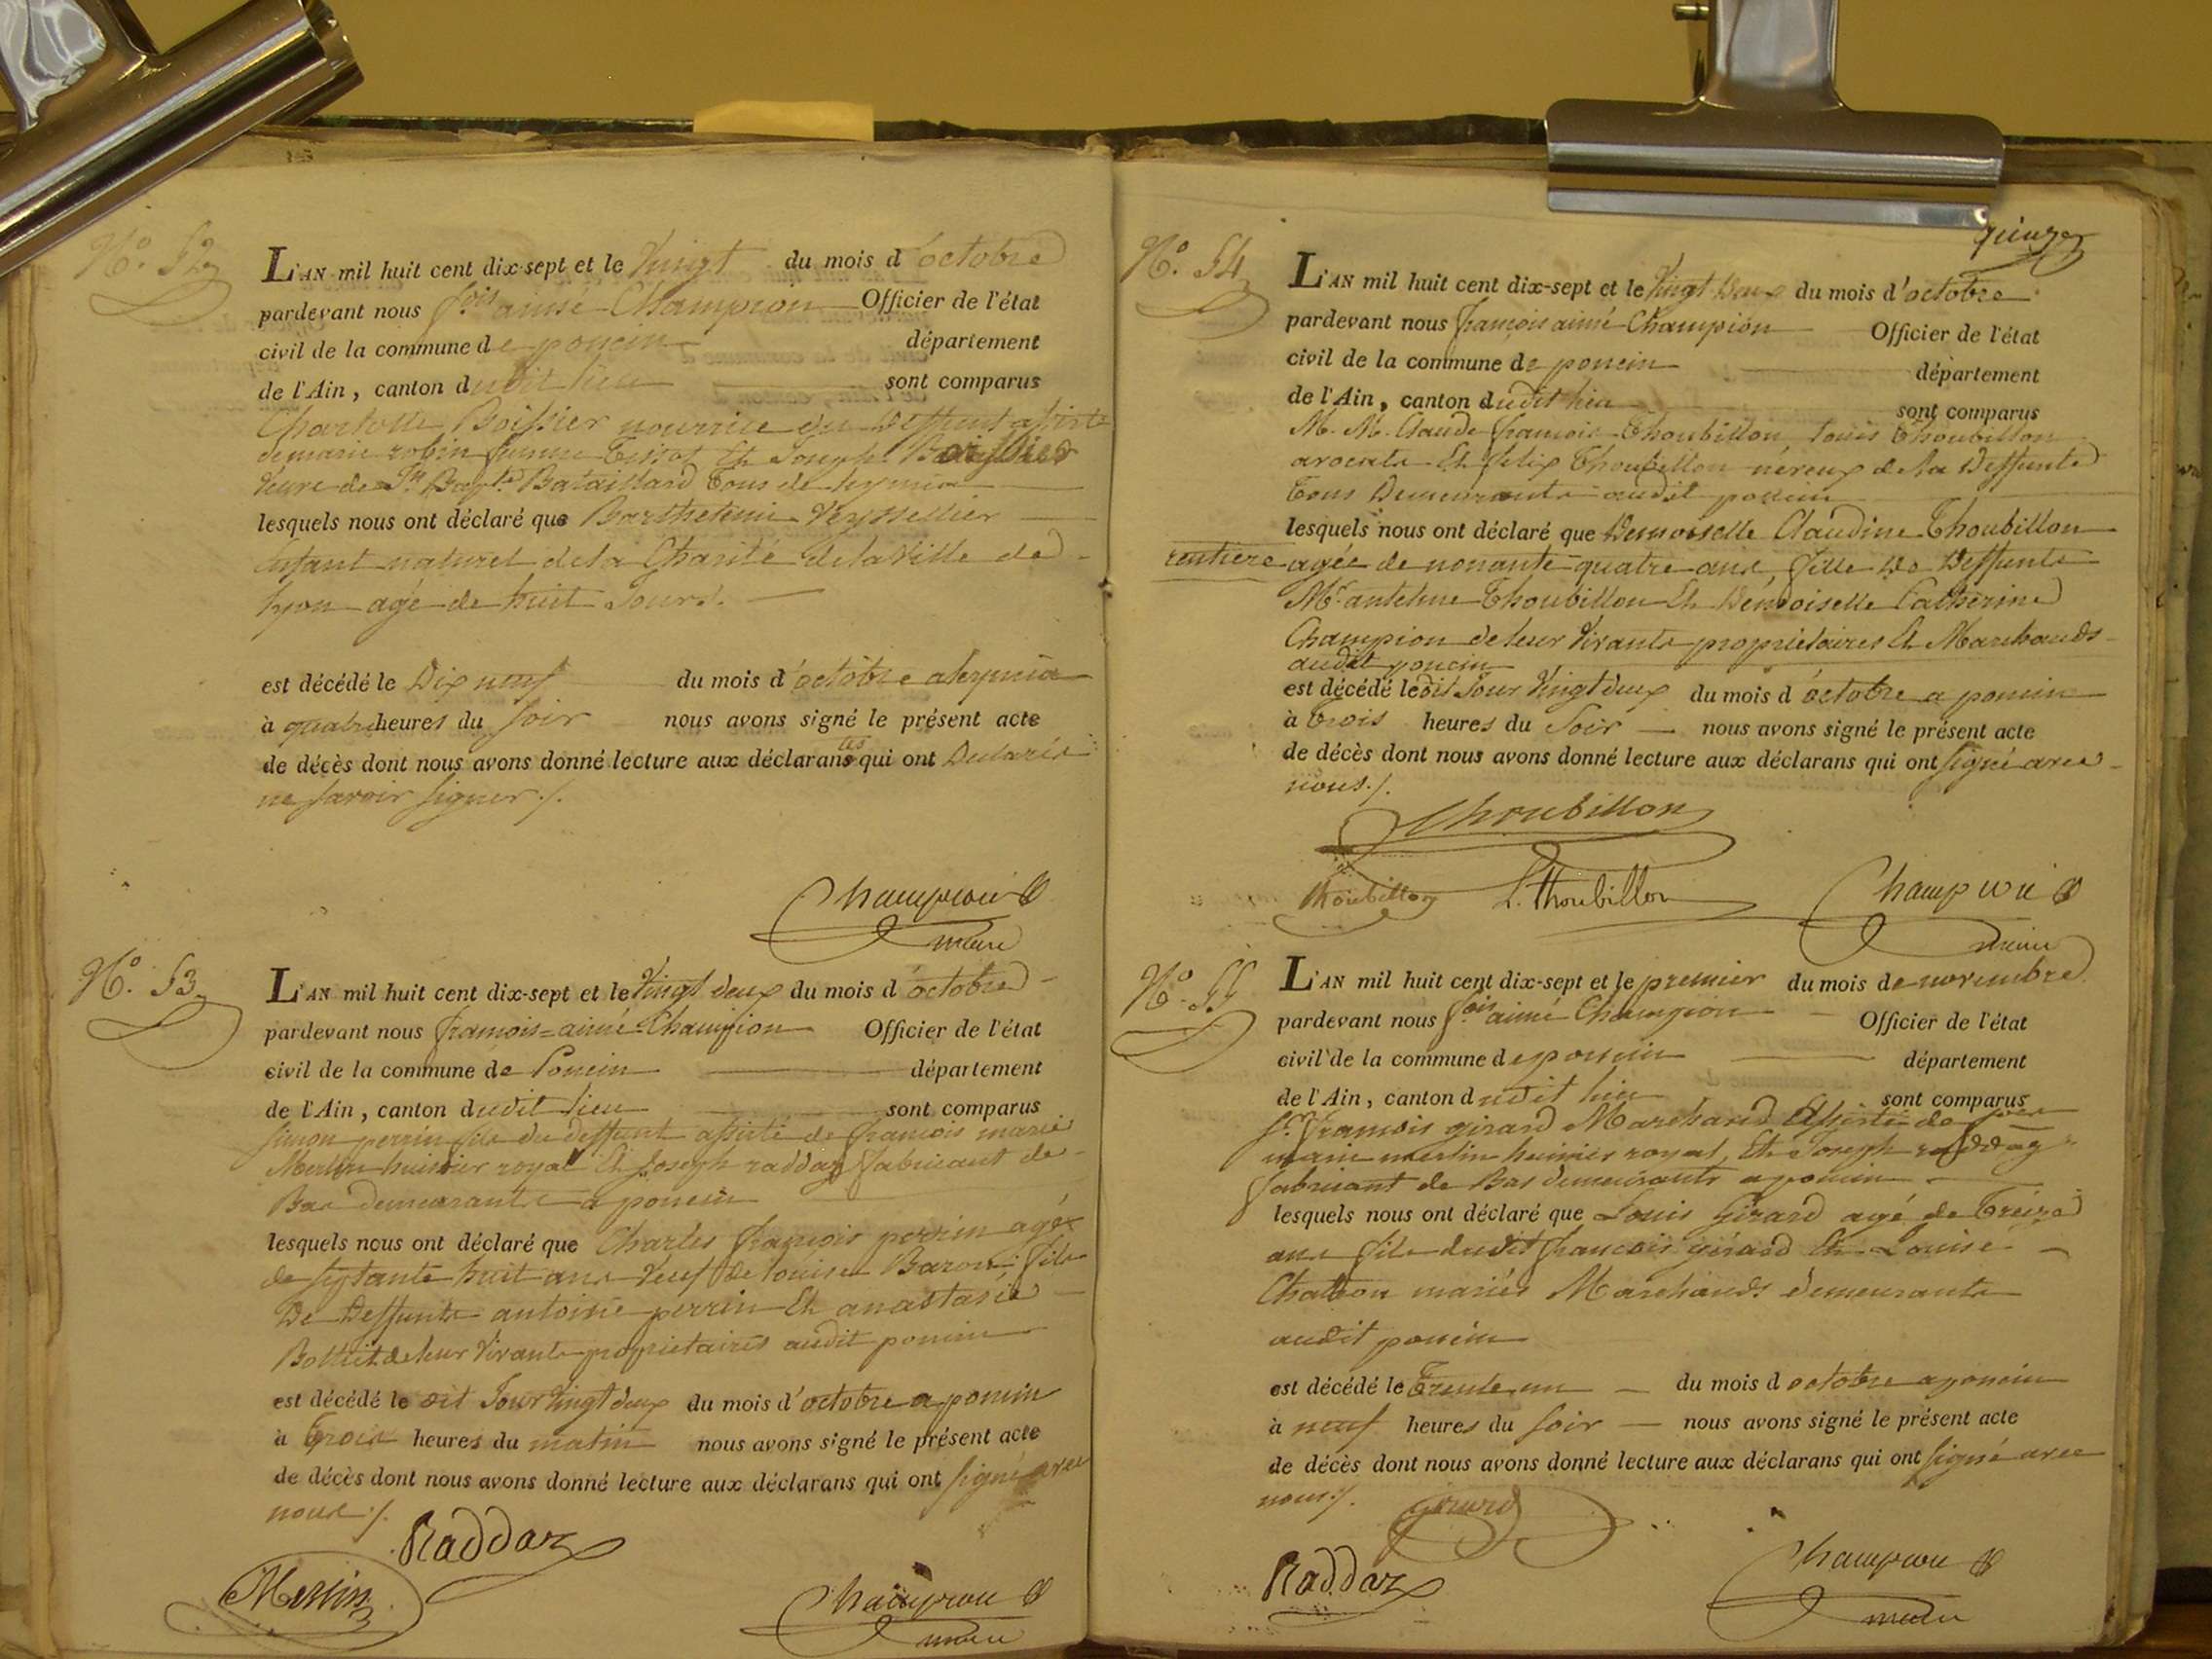 N.o 52
L'AN mil huit cent dix-sept et le Vingt du mois d'octobre
pardevant nous f.ois aimé Champion Officier de l'état
civil de la commune de poncin département
de l'Ain, canton dudit lieu sont comparus
Charlotte Boissier nourrice du deffunt assisté
de marie robin femme Tissot Et Joseph
veuve de Jn Bap.te Bataillard tous de
lesquels nous ont déclaré que Barthelemi Veyssellier
Enfant naturel de la Charité de la Ville de
lyon agé de huit Jours.
est décédé le Dix neuf du mois d'octobre
à quatre heures du soir nous avons signé le présent acte
de décès dont nous avons donné lecture aux déclarans tes qui ont Declarés
ne savoir signer ./.
Champion
maire
N.o 53
L'AN mil huit cent dix-sept et le Vingt deux du mois d'octobre
pardevant nous françois=aimé Champion Officier de l'état
civil de la commune de Poncin département
de l'Ain, canton dudit lieu sont comparus
simon perrin fils du deffunt assisté de francois marie
Merlin huissier royal Et Joseph raddaz fabricant de
Bas demeurants a poncin
lesquels nous ont déclaré que Charles françois perrin agé
de septante huit ans Veuf de Louise Baron fils
De Deffunts antoine perrin Et anastasie
de leur Vivants propriétaires audit poncin
est décédé le dit Jour Vingt deux du mois d'octobre a poncin
à trois heures du matin nous avons signé le présent acte
de décès dont nous avons donné lecture aux déclarans qui ont signé avec
nous ./.
Raddaz
Merlin
Champion
maire
quinze
N.o 54
L'AN mil huit cent dix-sept et le Vingt Deux du mois d'octobre
pardevant nous françois aimé Champion Officier de l'état
civil de la commune de poncin département
de l'Ain, canton dudit lieu sont comparus
M. M. Claude francois Thoubillon, Louis Thoubillon
avocats Et felix Thoubillon néveux de la Deffunte
tous Demeurants audit poncin
lesquels nous ont déclaré que Demoiselle Claudine Thoubillon
rentiere agée de nonante quatre ans, fille De Deffunts
Mr antelme Thoubillon Et Demoiselle Catherine
Champion de leur Vivants propriétaires Et Marchands
audit poncin
est décédé ledit Jour Vingt deux du mois d'octobre a poncin
à trois heures du Soir nous avons signé le présent acte
de décès dont nous avons donné lecture aux déclarans qui ont signé avec
nous ./.
Thoubillon
Thoubillon L. Thoubillon Champion
maire
N.o 55
L'AN mil huit cent dix-sept et le premier du mois de novembre
pardevant nous f.ois aimé Champion Officier de l'état
civil de la commune de poncin département
de l'Ain, canton dudit lieu sont comparus
Sr. François girard Marchand Assisté de fois
marie merlin huissier royal, Et Joseph raddaz
fabricant de Bas demeurants a poncin
lesquels nous ont déclaré que Louis Girard agé de Treize
ans fils dudit francois girard Et Louise
mariés Marchands demeurants
audit poncin
est décédé le Trente un du mois d octobre a poncin
à neuf heures du soir nous avons signé le présent acte
de décès dont nous avons donné lecture aux déclarans qui ont signé avec
nous ./.
girard
Raddaz
Champion
maire